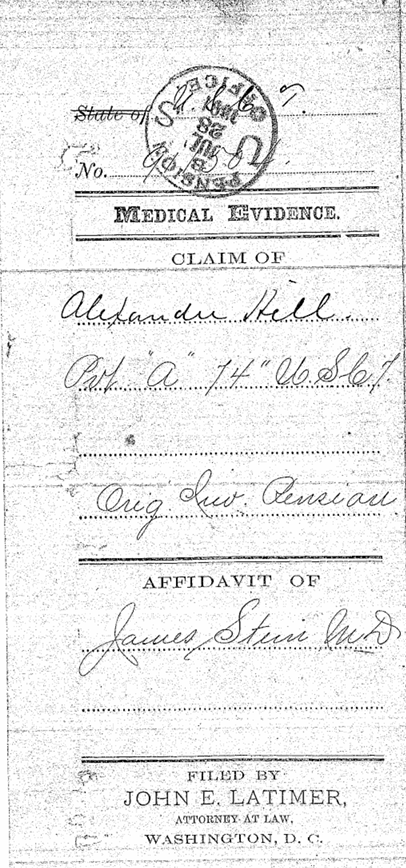 State of U.S.C.T.
No.
U.S. PENSION OFFICE
JUL
28
MEDICAL EVIDENCE.
CLAIM OF
Alexander Hill.
Pvt "A" 74" U.S.C.T.
Orig Inv. Pension
AFFIDAVIT OF
James Stein M.D.
FILED BY
JOHN E. LATIMER,
ATTORNEY AT LAW,
WASHINGTON, D. C.